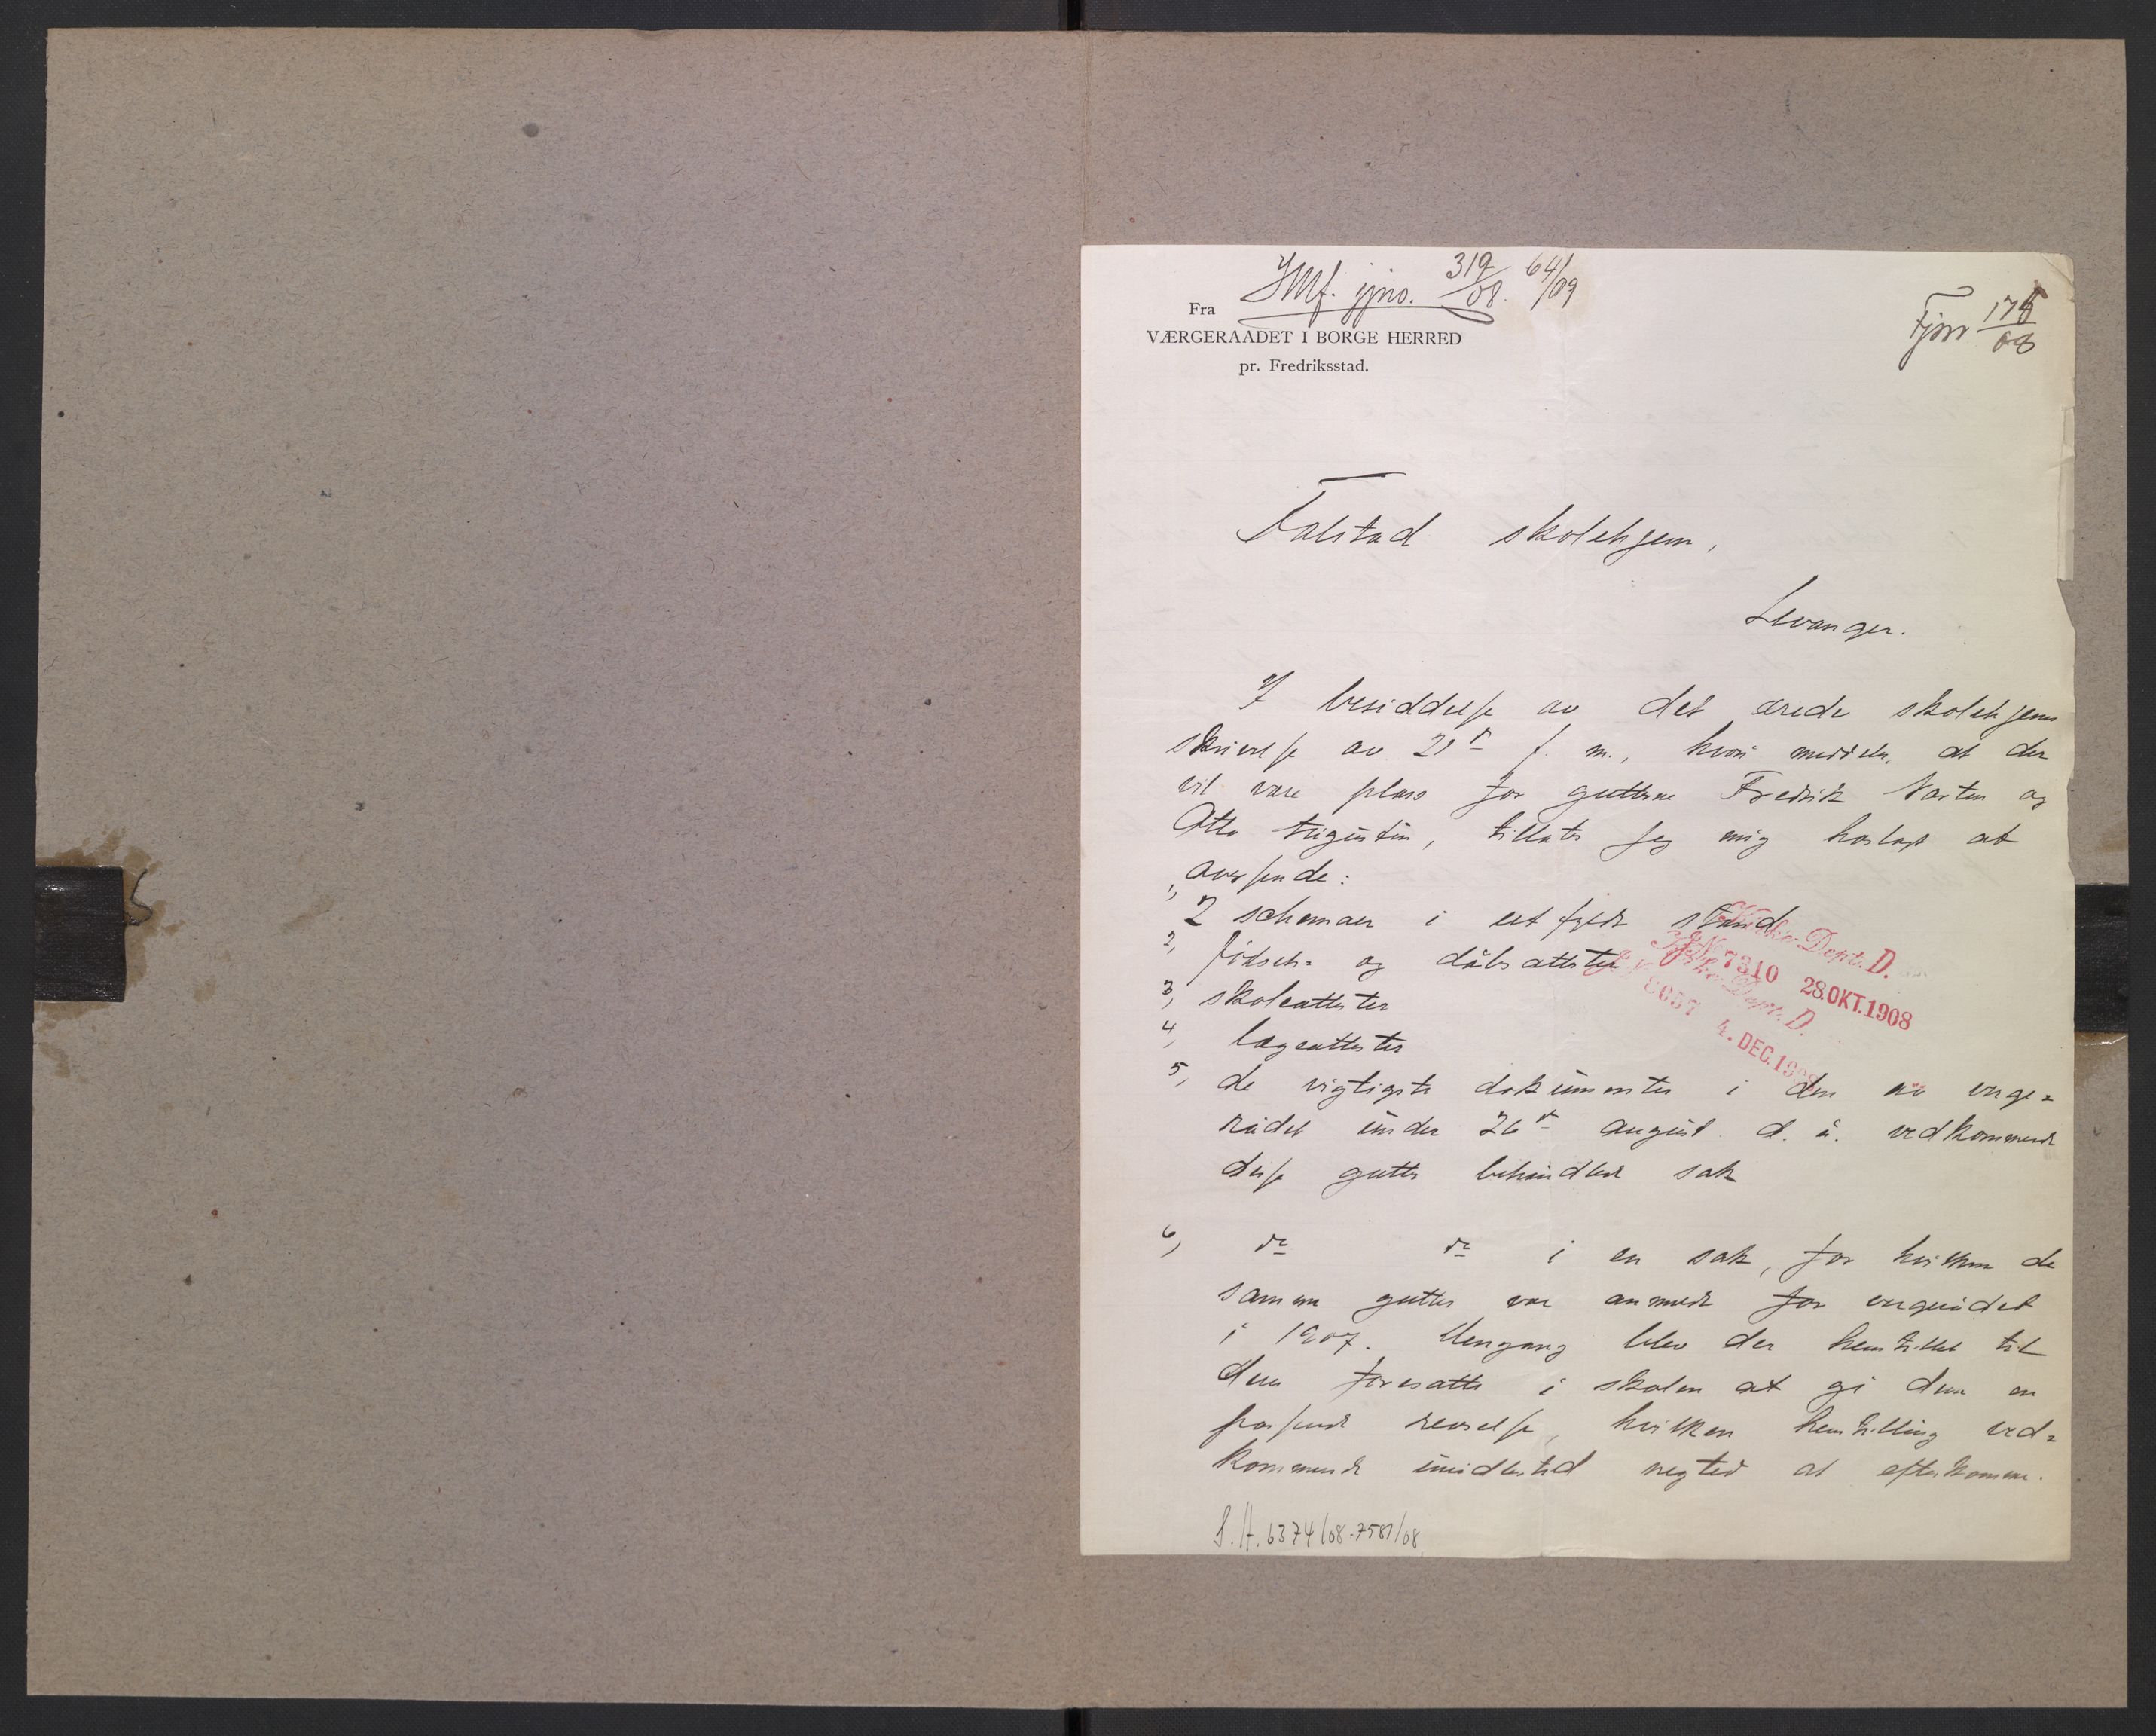 IMf. jjno. 319/08. 64/09
Fjnr 175/08
Fra
VÆRGERAADET I BORGE HERRED
pr. Fredriksstad.
Falstad skolehjem,
Levanger.
I besiddelse av det ærede skolehjems
skrivelse av 21de f. m., hvori meddeles, at der
vil være plass for gutterne Fredrik og
Otto Augustin, tillater jeg mig hoslagt at
oversende:
1, 2 schemaer i utfyldt stand
2, fødsels- og dåbsattester
3, skoleattester
4, lægeattester
5, de vigtigste dokumenter i den av verge=
rådet under 26de august d. å. vedkommende
disse gutter behandlede sak
6, do do i en sak, for hvilken de
samme gutter var anmeldt for vergerådet
i 1907. Dengang blev der henstillet til
deres foresatte i skolen at gi dem en
passende revselse, hvilken henstilling ved=
kommende imidlertid negted at efterkomme.
Kirke-Dept. D.
JN 7310 28.OKT.1908
Kirke-Dept. D.
J.N. 8057 4. DEC. 1908
S.A. 6374/08-7581/08